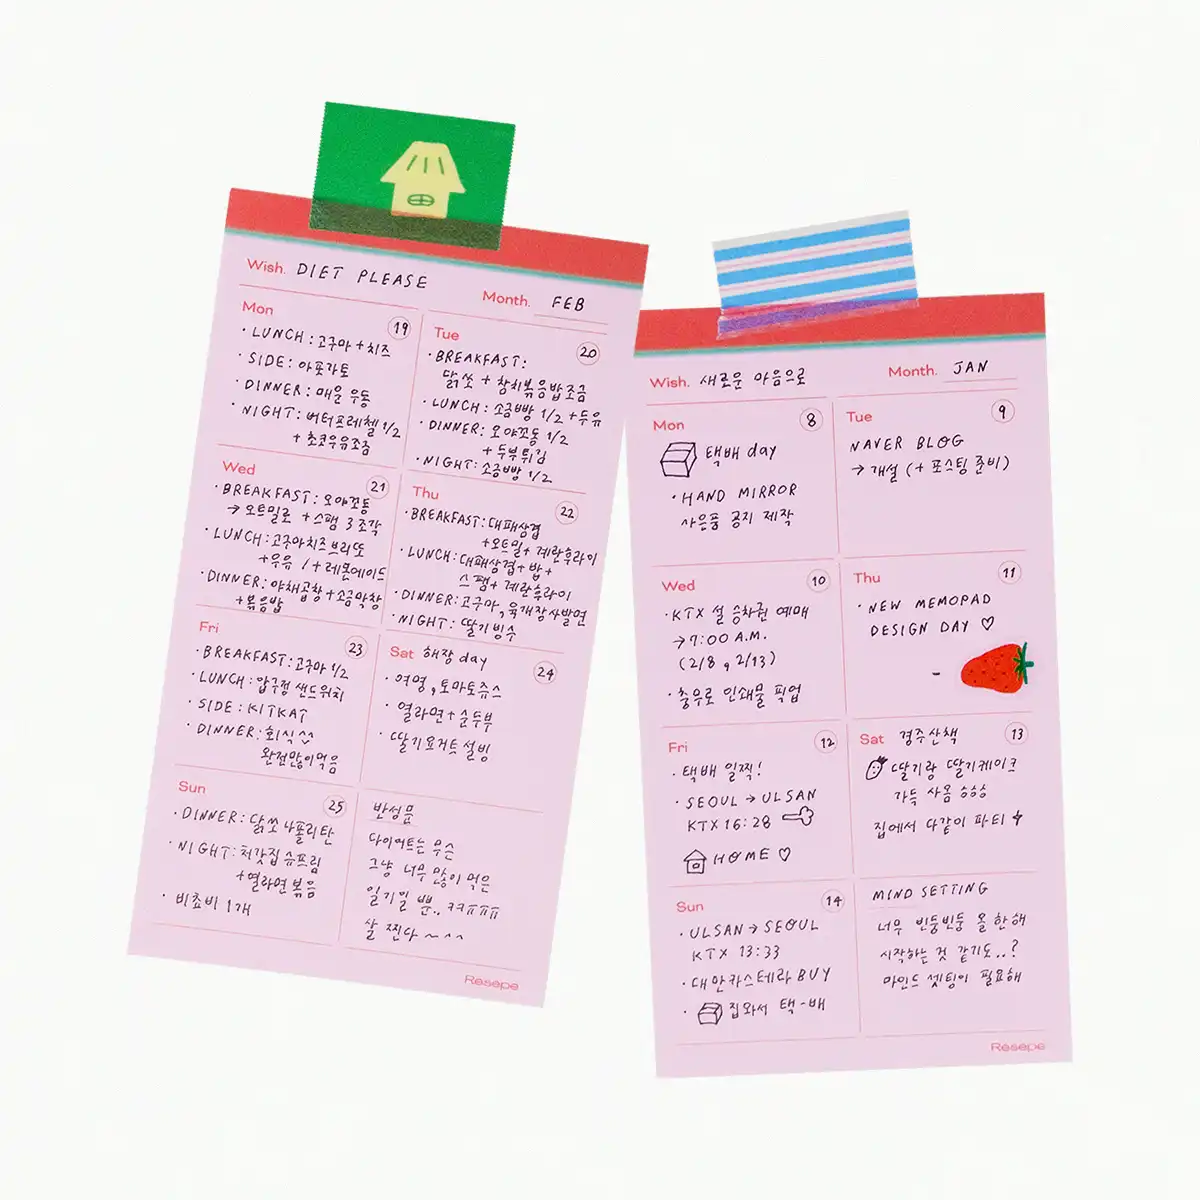 Wish. DIET PLEASE
Month. FEB
Mon 19
· LUNCH : 고구마 + 치즈
· SIDE : 아포가토
· DINNER : 매운 우동
· NIGHT : 버터프레첼 1/2
+ 초코우유조금
Tue 20
· BREAKFAST :
닭쏘 + 참치볶음밥조금
· LUNCH : 소금빵 1/2 + 두유
· DINNER : 오야꼬동 1/2
+ 두부튀김
· NIGHT : 소금빵 1/2
Wed 21
· BREAKFAST : 오야꼬동
→ 오트밀로 + 스팸 3조각
· LUNCH : 고구마치즈브리또
+우유 1 + 레몬에이드
· DINNER : 야채곱창 + 소금막창
+볶음밥
Thu 22
· BREAKFAST : 대패삼겹
+오트밀 + 계란후라이
· LUNCH : 대패삼겹 + 밥 +
스팸 + 계란후라이
· DINNER : 고구마, 육개장사발면
· NIGHT : 딸기빙수
Fri 23
· BREAKFAST : 고구마 1/2
· LUNCH : 압구정 샌드위치
· SIDE : KITKAT
· DINNER : 회식^^
완전많이먹음
Sat 해장 day 24
· 여명, 토마토쥬스
· 열라면 + 순두부
· 딸기요거트설빙
Sun 25
· DINNER : 닭쏘 나폴리탄
· NIGHT : 처갓집 슈프림
+열라면볶음
· 비쵸비 1개
반성문
다이어트는 무슨
그냥 너무 많이 먹은
일기일 뿐.. ㅋㅋㅠㅠㅠ
살 찐다 ~ ^^
Resepe
Wish. 새로운 마음으로
Month. JAN
Mon 8
택배 day
· HAND MIRROR
사은품 공지 제작
Tue 9
NAVER BLOG
→ 개설 (+ 포스팅 준비)
Wed 10
· KTX 설 승차권 예매
→ 7:00 A.M.
(2/8, 2/13)
· 충무로 인쇄물 픽업
Thu 11
· NEW MEMOPAD
DESIGN DAY ♡
Fri 12
· 택배 일찍!
· SEOUL → ULSAN
KTX 16:28
HOME ♡
Sat 경주산책 13
딸기랑 딸기케이크
가득 사옴 승승승
집에서 다같이 파티
Sun 14
· ULSAN → SEOUL
KTX 13:33
· 대만카스테라 BUY
· 집와서 택-배
MIND SETTING
너무 빈둥빈둥 올 한해
시작하는 것 같기도..?
마인드 셋팅이 필요해
Resepe